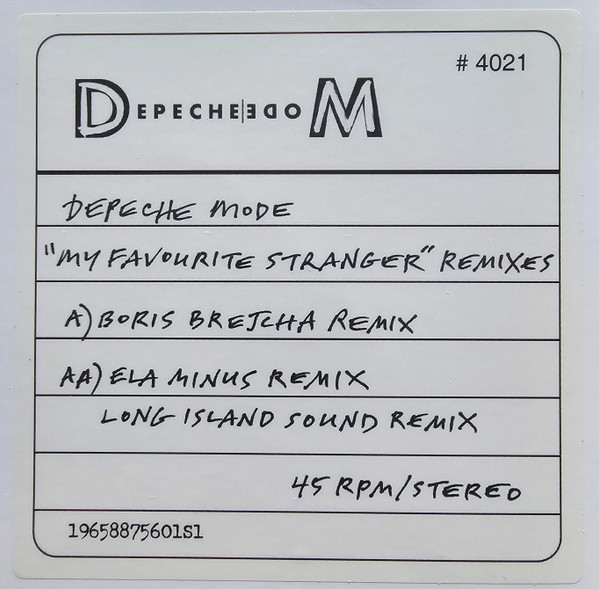 # 4021
DEPECHE MODE M
DEPECHE MODE
"MY FAVOURITE STRANGER" REMIXES
A) BORIS BREJCHA REMIX
AA) ELA MINUS REMIX
LONG ISLAND SOUND REMIX
45 RPM/STEREO
19658875601S1